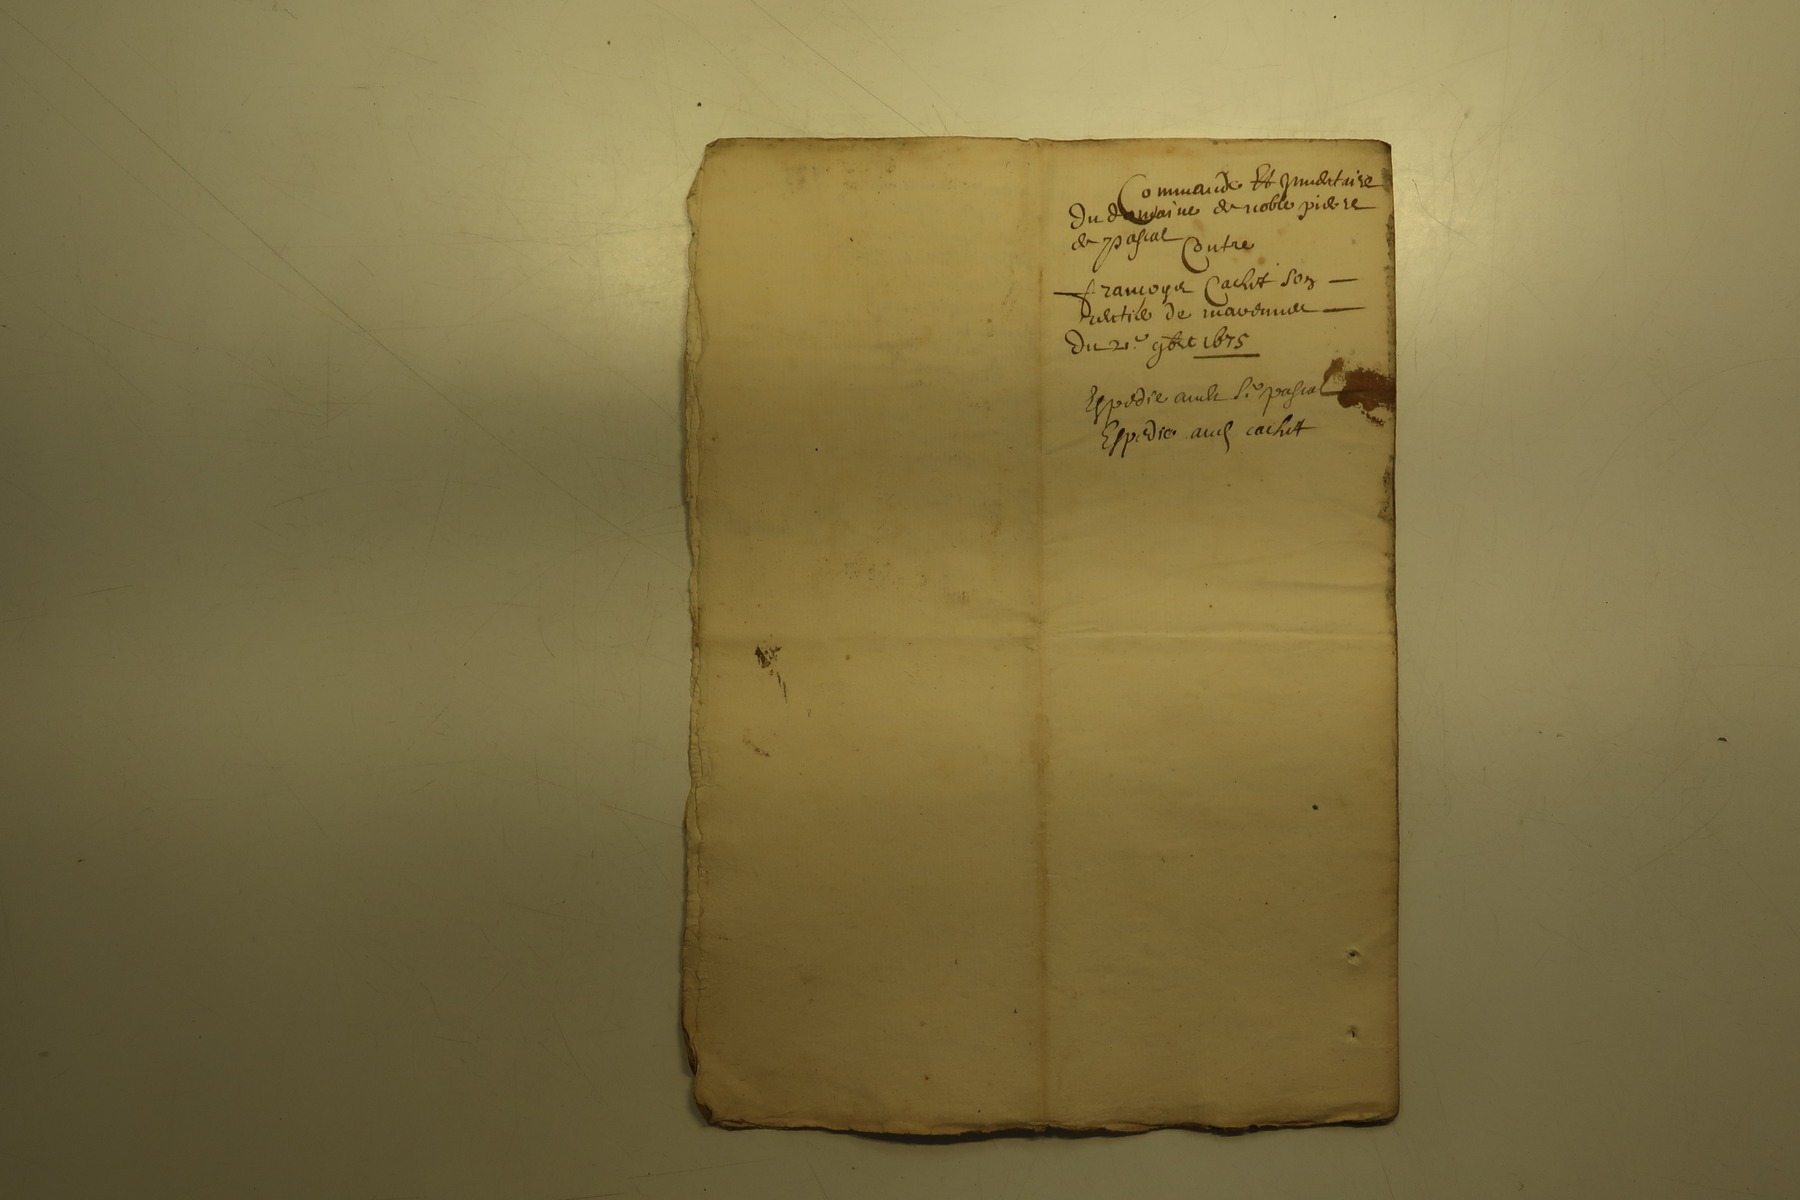 Commande Et Inventaire
Du domaine de noble pierre
de pascal Contre
françoys Cachet son
du 2e 9bre 1675
Expedie audt Sr pascal
Expedie aud cachet